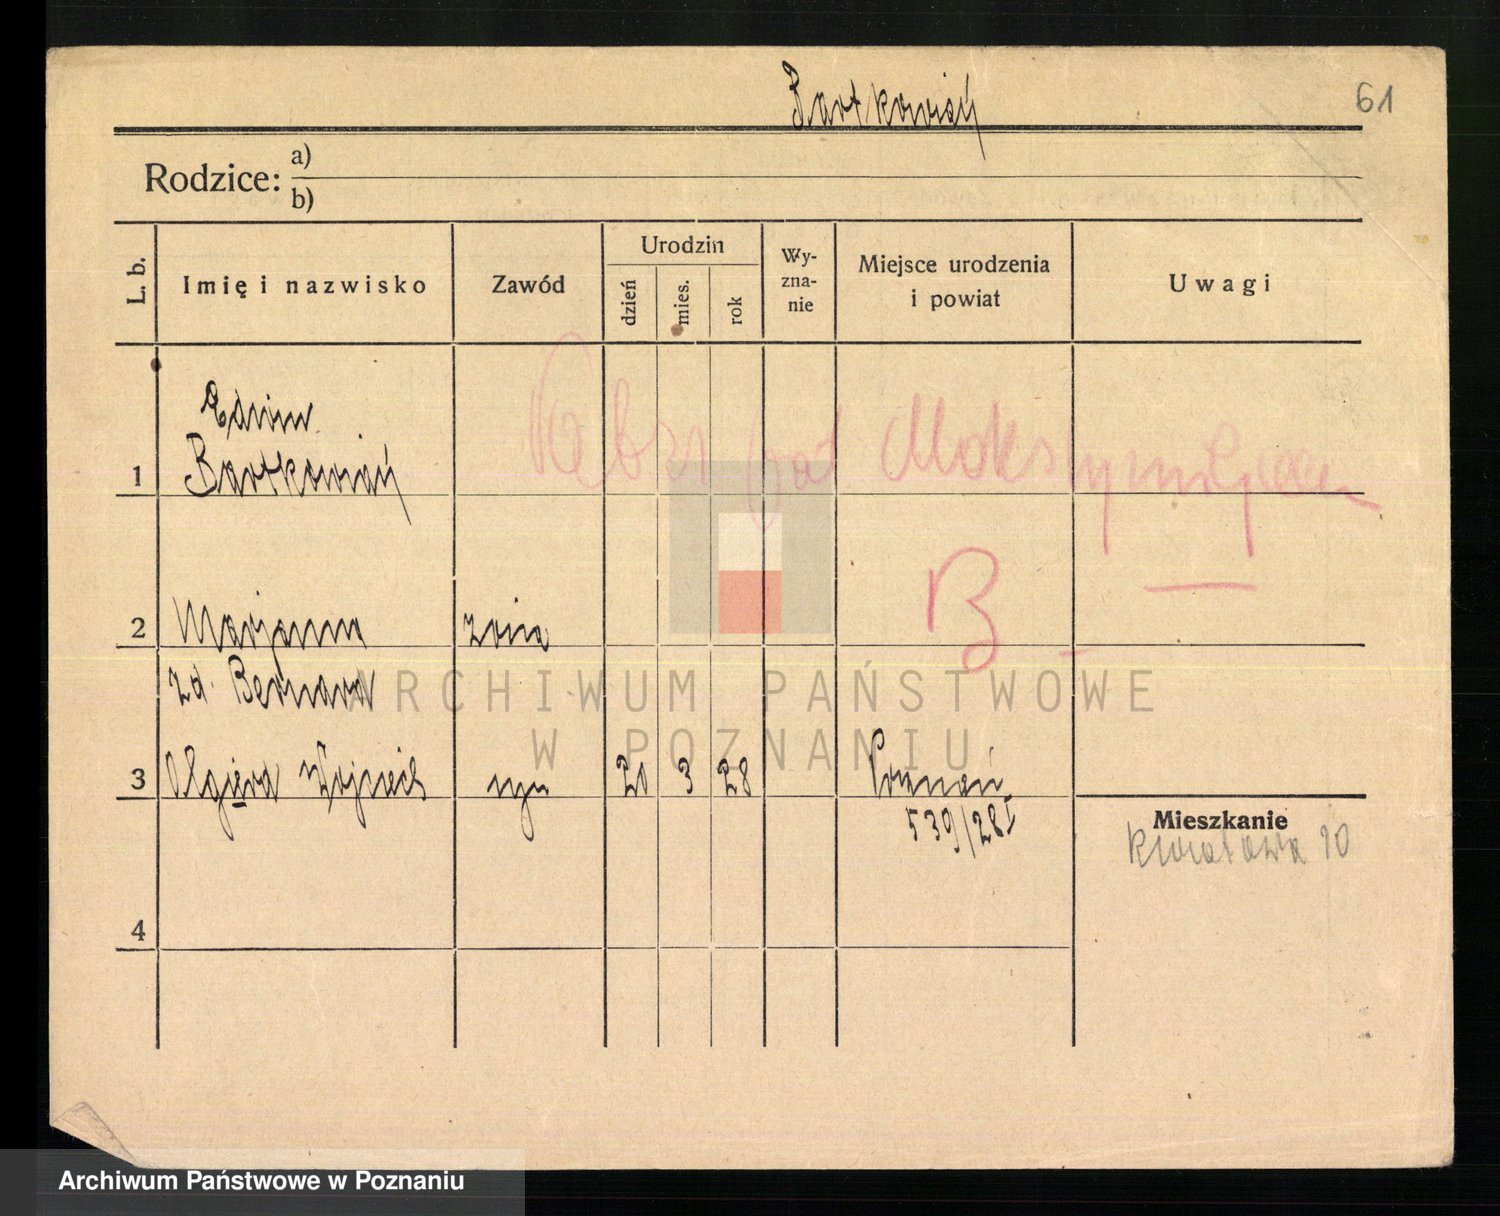 Bartkowiak
61
Rodzice: a)
b)
L. b.
Imię i nazwisko
Zawód
Urodzin
dzień
mies.
rok
Wy-
zna-
nie
Miejsce urodzenia
i powiat
Uwagi
Edwin
1 Bartkowiak
pod Maksymiljan
B
2 Marjanna żona
zd. Bernard
3 Olgierd Wojciech syn 20 3 28 Poznań
539/28 I
Mieszkanie
Kwiatowa 10
4
ARCHIWUM PAŃSTWOWE
W POZNANIU
Archiwum Państwowe w Poznaniu